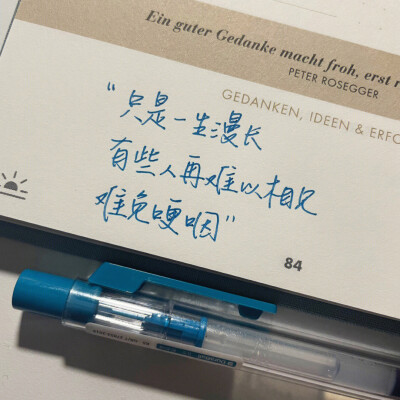 Ein guter Gedanke macht froh, erst
PETER ROSEGGER
GEDANKEN, IDEEN & ERFO
“只是一生漫长
有些人再难以相见
难免哽咽”
84